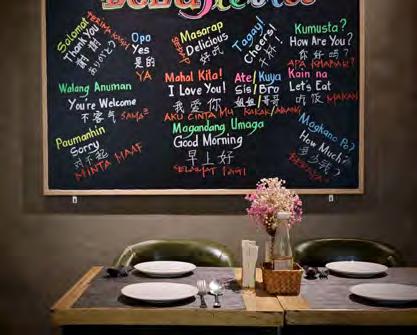 Salamat
TERIMA KASIH
Thank You
謝謝
ありがとう
Opo
Yes
是的
YA
Masarap
Delicious
好吃
Tagay!
Cheers!
干杯
Kumusta?
How Are You?
你好吗?
APA KHABAR?
Walang Anuman
You're Welcome
不客气
SAMA²
Mahal Kita!
I Love You!
我爱你
AKU CINTA MU
Ate/Kuya
Sis/Bro
姐姐/哥哥
KAKAK/ABANG
Kain na
Let's Eat
吃饭
MAKAN
Paumanhin
Sorry
对不起
MINTA MAAF
Magandang Umaga
Good Morning
早上好
SELAMAT PAGI
Magkano Po?
How Much?
多少钱?